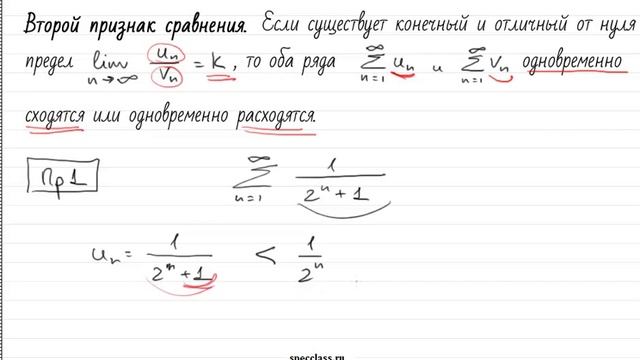 Второй признак сравнения. Если существует конечный и отличный от нуля
предел lim n→∞ uₙ/vₙ = k, то оба ряда ∑ₙ₌₁^∞ uₙ и ∑ₙ₌₁^∞ vₙ одновременно
сходятся или одновременно расходятся.
Пр 1 ∑ₙ₌₁^∞ 1/(2ⁿ + 1)
uₙ = 1/(2ⁿ + 1) < 1/2ⁿ
specclass.ru